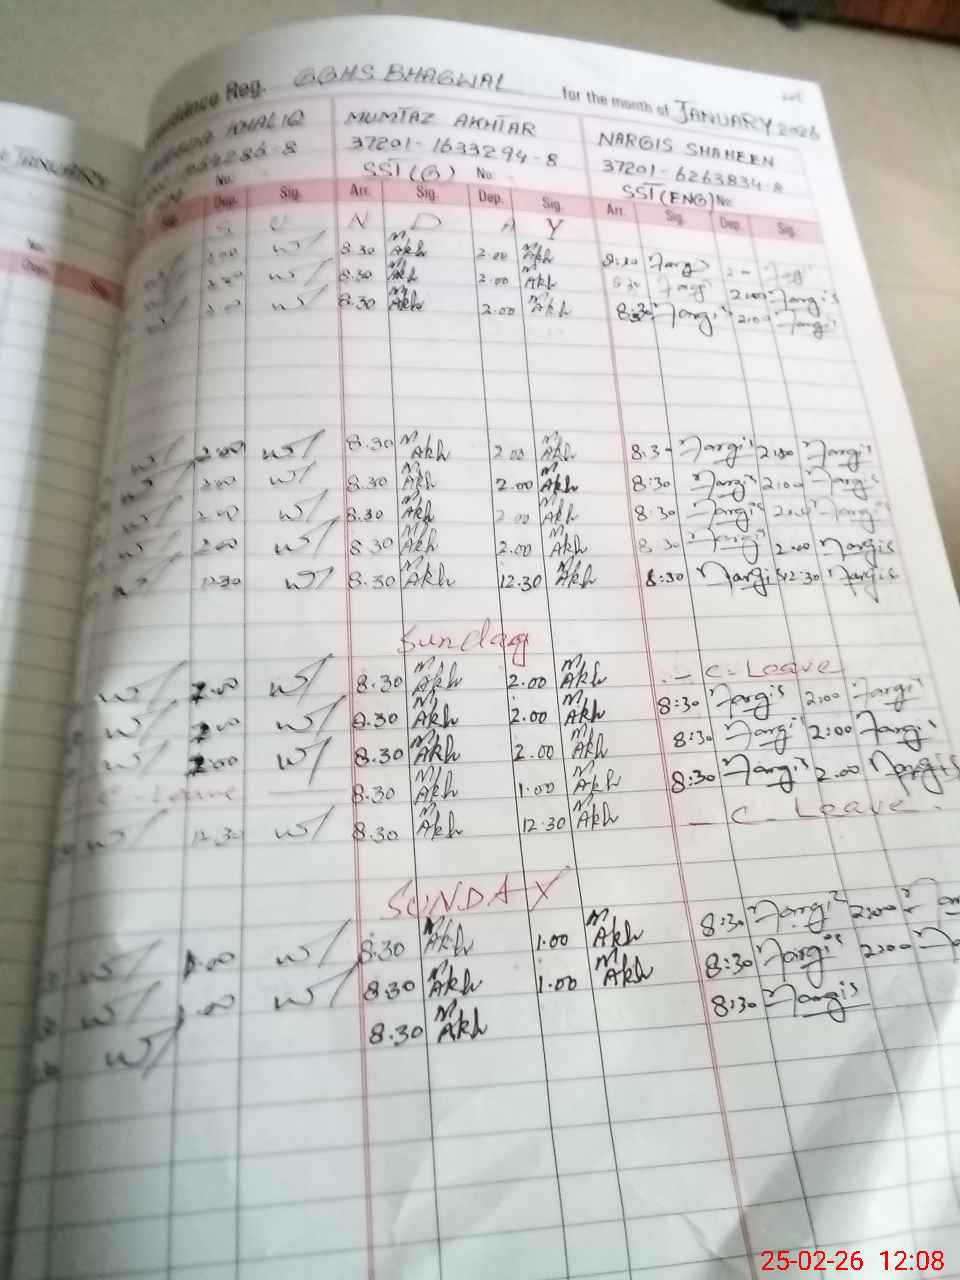 Reg. GGHS BHAGWAL for the month of JANUARY 2026
KHALIQ MUMTAZ AKHTAR NARGIS SHAHEEN
37201-1633294-8 37201-6263834-8
No. SST(G) No. SST(ENG) No.
Sig. Dep. Sig. Arr. Sig. Dep. Sig. Arr. Sig. Dep. Sig.
S U N D A Y
8.30 M Akh 2.00 M Akh 8:30
8.30 M Akh 2.00 M Akh
8.30 M Akh 2.00 M Akh 8:30 Nargis 2:00 Nargis
2.00 8.30 M Akh 2.00 M Akh 8:3- Nargis 2:00 Nargis
2.00 8.30 M Akh 2.00 M Akh 8:30 Nargis 2:00 Nargis
2.00 8.30 M Akh 2.00 M Akh 8:30 Nargis Nargis
2.00 8.30 M Akh 2.00 M Akh 8:30 Nargis 2:00 Nargis
12.30 8.30 M Akh 12.30 M Akh 8:30 Nargis 12:30 Nargis
Sunday
2.00 8.30 M Akh 2.00 M Akh - C-Leave
2.00 8.30 M Akh 2.00 M Akh 8:30 Nargis 2:00 Nargis
2.00 8.30 M Akh 2.00 M Akh 8:30 Nargis 2:00 Nargis
C-Leave 8.30 M Akh 1.00 M Akh 8:30 Nargis 2.00 Nargis
12.30 8.30 M Akh 12.30 M Akh - C-Leave
SUNDAY
1.00 8.30 M Akh 1.00 M Akh 8:30 Nargis 2:00
1.00 8.30 M Akh 1.00 M Akh 8:30 Nargis 2:00
8.30 M Akh 8:30 Nargis
JANUARY
No.
Dep. Sig.
25-02-26 12:08